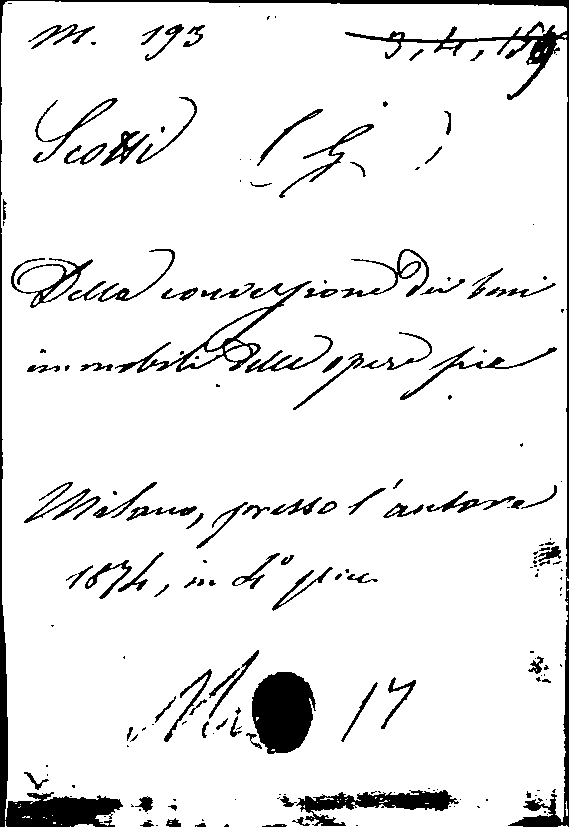 M. 193 3, 4, 18
Scotti (G )
Della conversione dei beni
immobili delle opere pie
Milano, presso l'autore
1874, in 4° picc.
17